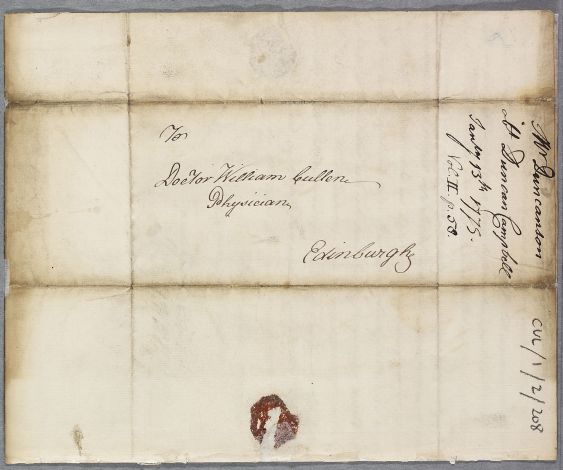 To
Doctor William Cullen
Physician
Edinburgh
Mr Duncanson
At Duncan Campbell
Jany 13th 1775.
Vol. II p. 58.
CUL/1/2/208